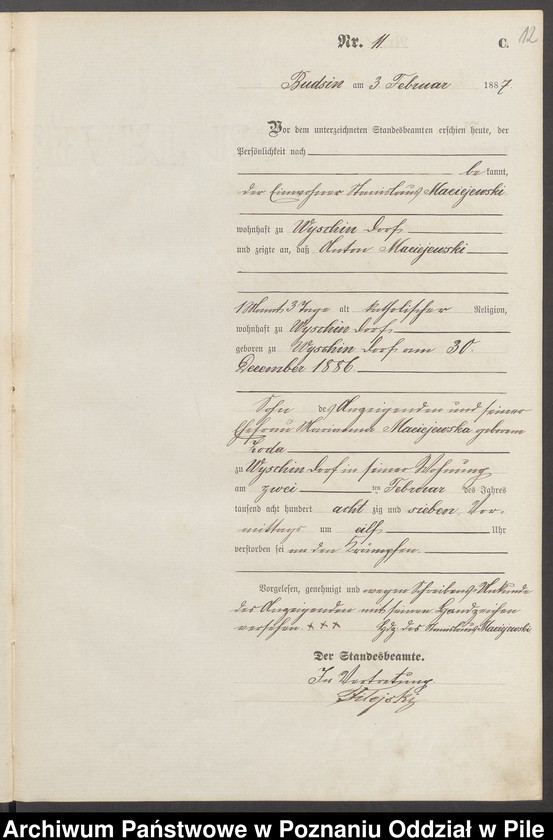 12
Nr. 11. C.
Budsin am 3. Februar 1887
Vor dem unterzeichneten Standesbeamten erschien heute, der
Persönlichkeit nach
be kannt,
der Einwohner Stanislaus Maciejewski
wohnhaft zu Wyschin Dorf
und zeigte an, daß Anton Maciejewski
1 Monat 3 Tage alt katholischer Religion,
wohnhaft zu Wyschin Dorf
geboren zu Wyschin Dorf am 30.
December 1886
Sohn des Anzeigenden und seiner
Ehefrau Marianna Maciejewska geborene
zu Wyschin Dorf in seiner Wohnung
am zwei ten Februar des Jahres
tausend acht hundert acht zig und sieben, Vor-
mittags um eilf Uhr
verstorben sei an den Krämpfen.
Vorgelesen, genehmigt und wegen Schreibens Unkunde
des Anzeigenden mit seinen Handzeichen
versehen. +++ Hdz des Stanislaus Maciejewski
Der Standesbeamte.
In Vertretung.
Archiwum Państwowe w Poznaniu Oddział w Pile